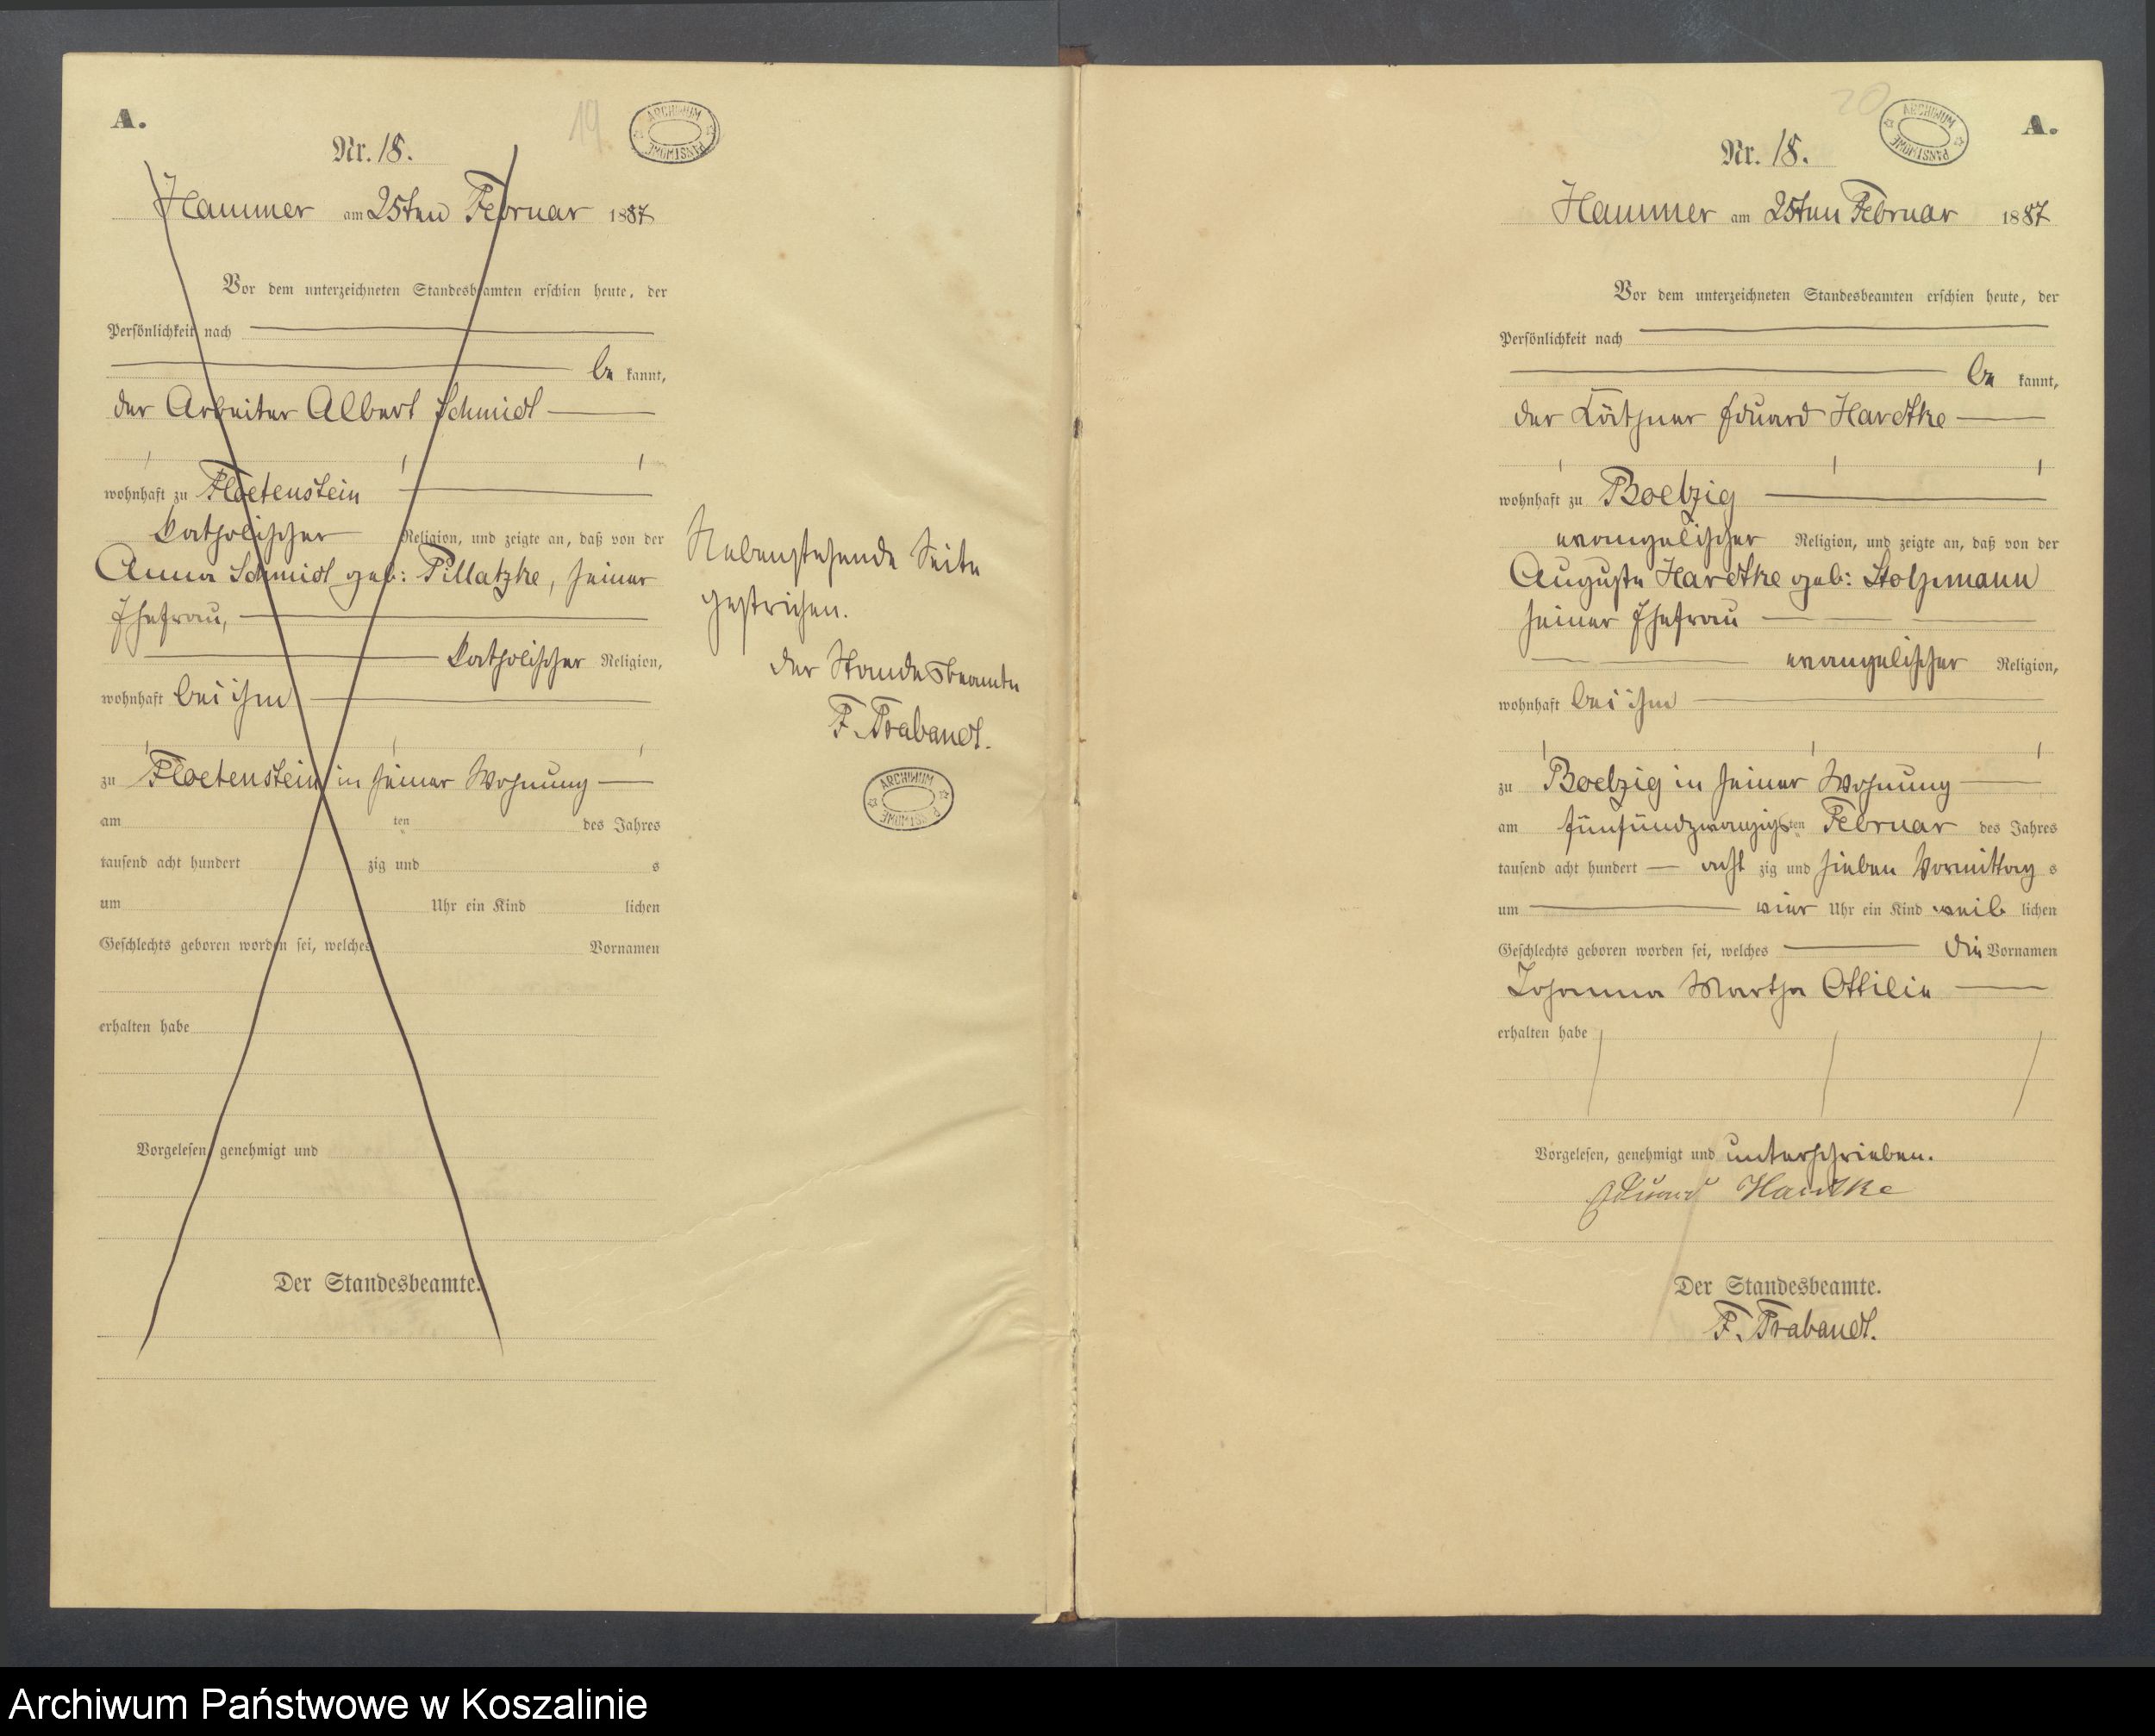 A.
19
ARCHIWUM PAŃSTWOWE
Nr. 18.
Hammer am 25ten Februar 1887
Vor dem unterzeichneten Standesbeamten erschien heute, der
Persönlichkeit nach
be kannt,
der Arbeiter Albert Schmidt
wohnhaft zu Floetenstein
katholischer Religion, und zeigte an, daß von der
Anna Schmidt geb: Pillatzke, seiner
Ehefrau,
katholischer Religion,
wohnhaft bei ihm
zu Floetenstein in seiner Wohnung
am ten des Jahres
tausend acht hundert zig und s
um Uhr ein Kind lichen
Geschlechts geboren worden sei, welches Vornamen
erhalten habe
Vorgelesen, genehmigt und
Der Standesbeamte.
Nebenstehende Seite
gestrichen.
Der Standesbeamte
F. Trabandt.
ARCHIWUM PAŃSTWOWE
20
ARCHIWUM PAŃSTWOWE
A.
Nr. 18.
Hammer am 25ten Februar 1887
Vor dem unterzeichneten Standesbeamten erschien heute, der
Persönlichkeit nach
be kannt,
der Käthner Eduard Hardtke
wohnhaft zu Boelzig
evangelischer Religion, und zeigte an, daß von der
Auguste Hardtke geb: Stolzmann
seiner Ehefrau
evangelischer Religion,
wohnhaft bei ihm
zu Boelzig in seiner Wohnung
am fünfundzwanzigsten Februar des Jahres
tausend acht hundert acht zig und sieben Vormittag s
um vier Uhr ein Kind weib lichen
Geschlechts geboren worden sei, welches die Vornamen
Johanna Martha Ottilie
erhalten habe
Vorgelesen, genehmigt und unterschrieben.
Eduard Hardtke
Der Standesbeamte.
F. Trabandt.
Archiwum Państwowe w Koszalinie